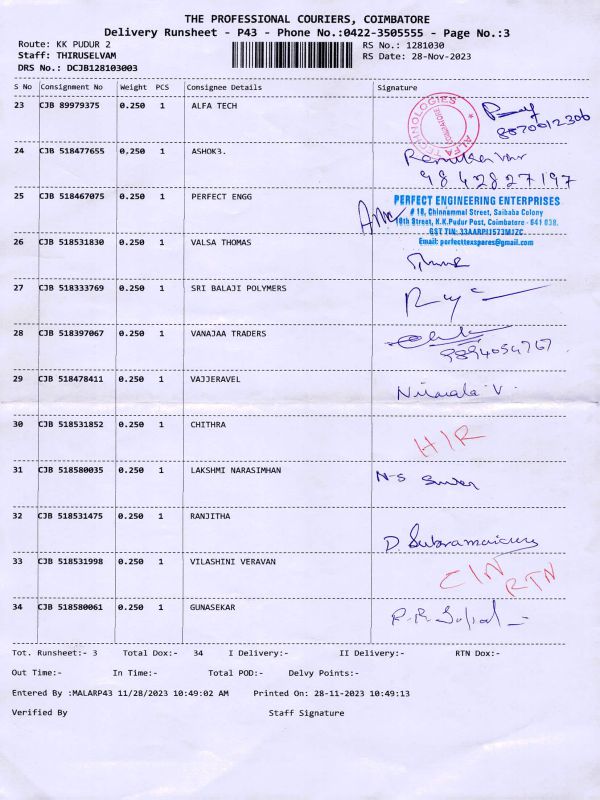 THE PROFESSIONAL COURIERS, COIMBATORE
Delivery Runsheet - P43 - Phone No.:0422-3505555 - Page No.:3
Route: KK PUDUR 2 RS No.: 1281030
Staff: THIRUSELVAM RS Date: 28-Nov-2023
DRS No.: DCJB128103003
S No Consignment No Weight PCS Consignee Details Signature
23 CJB 89979375 0.250 1 ALFA TECH
ALFA TECHNOLOGIES COIMBATORE
8870012306
24 CJB 518477655 0.250 1 ASHOK3.
9842827197
25 CJB 518467075 0.250 1 PERFECT ENGG
PERFECT ENGINEERING ENTERPRISES
# 18, Chinnammal Street, Saibaba Colony
10th Street, K.K.Pudur Post, Coimbatore - 641 038.
GST TIN: 33AARPI1573MJZC
Email: perfecttexspares@gmail.com
26 CJB 518531830 0.250 1 VALSA THOMAS
27 CJB 518333769 0.250 1 SRI BALAJI POLYMERS
28 CJB 518397067 0.250 1 VANAJAA TRADERS
9894054767
29 CJB 518478411 0.250 1 VAJJERAVEL
Nirmala V.
30 CJB 518531852 0.250 1 CHITHRA
H/R
31 CJB 518580035 0.250 1 LAKSHMI NARASIMHAN
N-S
32 CJB 518531475 0.250 1 RANJITHA
D. Subramaniam
33 CJB 518531998 0.250 1 VILASHINI VERAVAN
C/N RTN
34 CJB 518580061 0.250 1 GUNASEKAR
Tot. Runsheet:- 3 Total Dox:- 34 I Delivery:- II Delivery:- RTN Dox:-
Out Time:- In Time:- Total POD:- Delvy Points:-
Entered By :MALARP43 11/28/2023 10:49:02 AM Printed On: 28-11-2023 10:49:13
Verified By Staff Signature